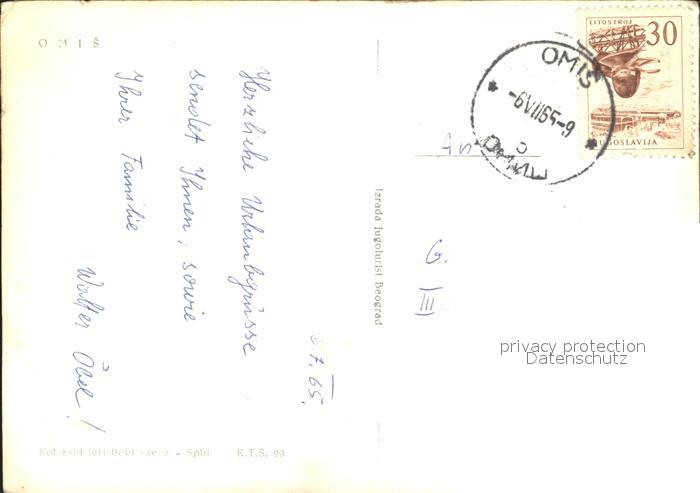 OMIŠ
Herzliche Urlaubsgrüsse
sendet Ihnen, sowie
Ihrer Familie
Walter
7. 65.
Kotarski turistički savez - Split K.T.S. 99
Izrada Jugoturist Beograd
LITOSTROJ
30
JUGOSLAVIJA
OMIŠ
-6VII65-9
ОМИШ
An
G.
III
privacy protection
Datenschutz